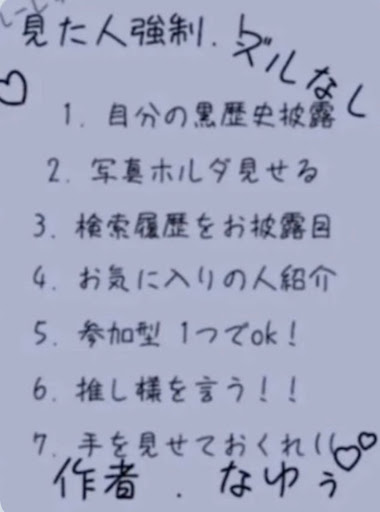 見た人強制.
ズルなし
1. 自分の黒歴史披露
2. 写真ホルダ見せる
3. 検索履歴をお披露目
4. お気に入りの人紹介
5. 参加型 1つでok!
6. 推し様を言う!!
7. 手を見せておくれ((
作者 . なゆぅ